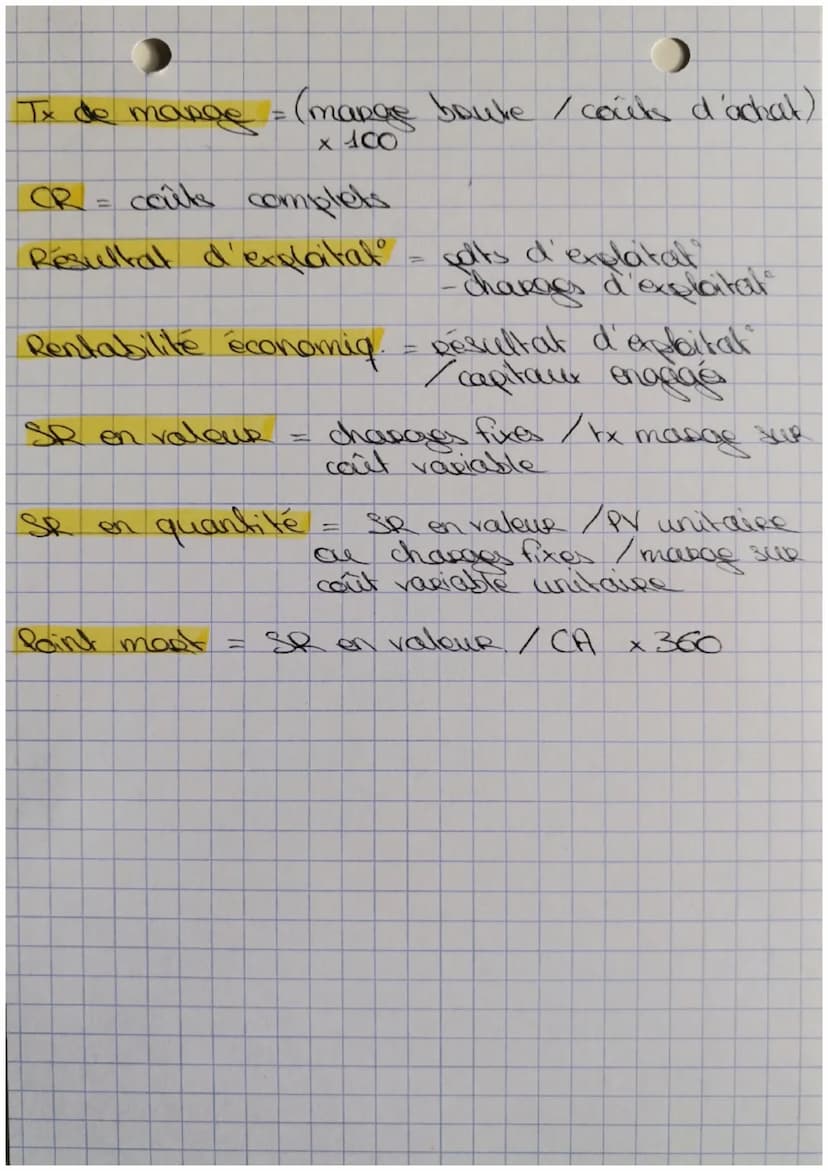 Tx de marge = (marge brute / coûts d'achat)
x 100
CR = coûts complets
Résultat d'exploitat° = pdts d'exploitat°
- charges d'exploitat°
Rentabilité économiq. = résultat d'exploitat°
/ capitaux engagés
SR en valeur = charges fixes / tx marge sur
coût variable
SR en quantité = SR en valeur / PV unitaire
ou charges fixes / marge sur
coût variable unitaire
Point mort = SR en valeur / CA x 360